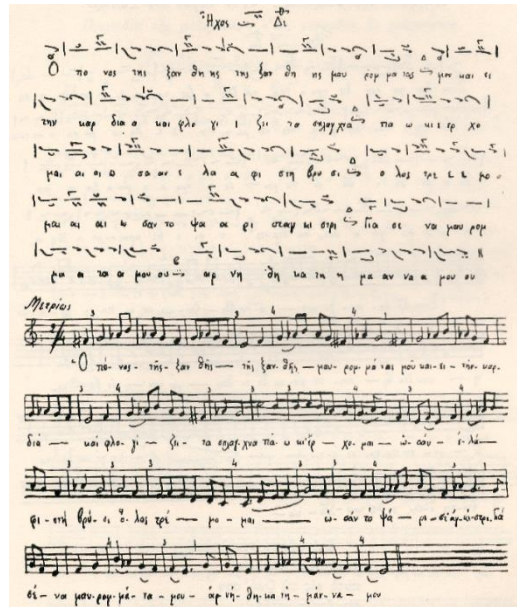 Ἦχος Δι
Ο πο νος της ξαν θη ης της ξαν θη ης μαυ ρομ μα τας μου και ει
την καρ δια α και φλο γι ι ζει τα σπλαχνα πα ω κι ε ερ χο
μαι αι ω σα αν ε λα α φι στη βρυ σι ο λος τρε ε ε μο
μαι αι αι ω σαν το ψα α ρι σταγ κι στρι Για σε να μαυ ρομ
μα α τα α μου ου αρ νη θη κα τη η μα αν να α μου ου
Μετρίως
Ὁ πό-νος-τῆς-ξαν θῆς — τῆς ξαν-θῆς — μαυ-ρομ-μά τας μοῦ και-ει-τήν-καρ-
διά — καί φλο-γί-ζει-τα σπλαχνα πά-ω κι'ἔρ-χο-μαι — ω-σάν-ἐ-λά-
φι-στή βρύ-σι ὅ-λος τρέ — μο-μαι — ω-σάν το ψά — ρι-
σέ-να μαυ-ρομ-μά-τα-μου — ἀρ νή-θη-κα τή-μάν-να — μου